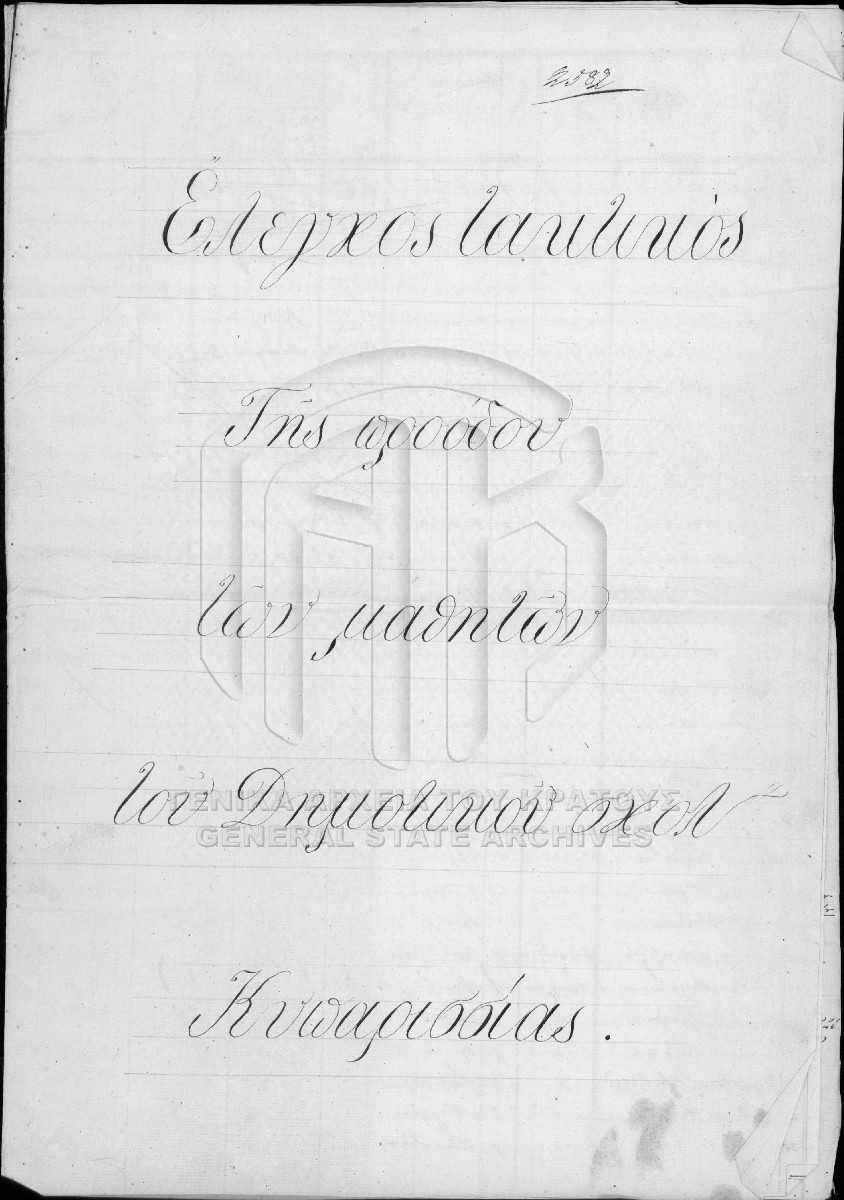 2582
Ἔλεγχος τακτικὸς
Τῆς προόδου
τῶν μαθητῶν
τοῦ Δημοτικοῦ σχολ
ΓΕΝΙΚΑ ΑΡΧΕΙΑ ΤΟΥ ΚΡΑΤΟΥΣ
GENERAL STATE ARCHIVES
Κυπαρισσίας.